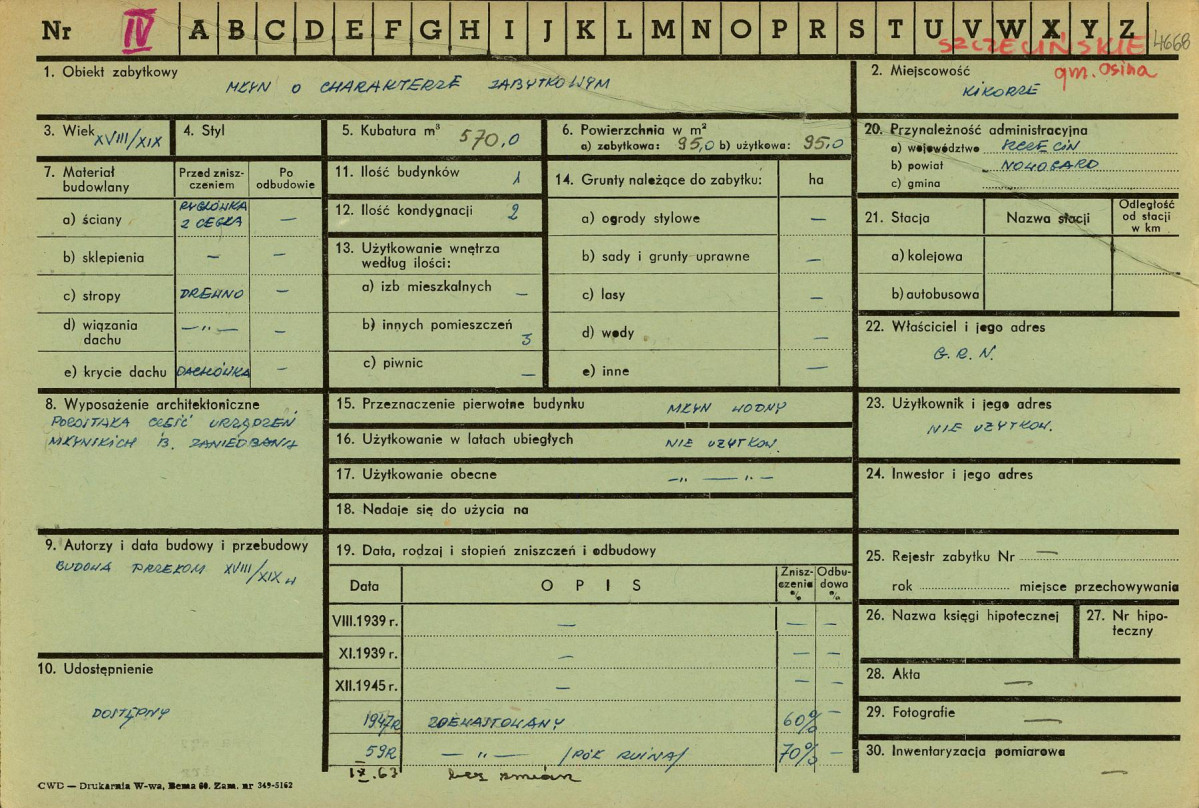 Nr IV A B C D E F G H I J K L M N O P R S T U V W X Y Z 4668
SZCZECIŃSKIE
gm. Osina
1. Obiekt zabytkowy
MŁYN O CHARAKTERZE ZABYTKOWYM
2. Miejscowość
KIKORZE
3. Wiek XVIII/XIX
4. Styl
5. Kubatura m³ 570,0
6. Powierzchnia w m²
a) zabytkowa: 95,0 b) użytkowa: 95,0
20. Przynależność administracyjna
a) województwo SZCZECIN
b) powiat NOWOGARD
c) gmina
7. Materiał budowlany
Przed zniszczeniem
Po odbudowie
a) ściany RYGLÓWKA Z CEGŁĄ —
b) sklepienia — —
c) stropy DREWNO —
d) wiązania dachu —„— —
e) krycie dachu DACHÓWKA —
11. Ilość budynków 1
12. Ilość kondygnacji 2
13. Użytkowanie wnętrza według ilości:
a) izb mieszkalnych —
b) innych pomieszczeń 3
c) piwnic —
14. Grunty należące do zabytku: ha
a) ogrody stylowe —
b) sady i grunty uprawne —
c) lasy —
d) wody —
e) inne —
21. Stacja
Nazwa stacji
Odległość od stacji w km
a) kolejowa
b) autobusowa
22. Właściciel i jego adres
G. R. N.
8. Wyposażenie architektoniczne
POZOSTAŁA CZĘŚĆ URZĄDZEŃ
MŁYŃSKICH B. ZANIEDBANA
15. Przeznaczenie pierwotne budynku MŁYN WODNY
16. Użytkowanie w latach ubiegłych NIE UŻYTKOW.
17. Użytkowanie obecne —„— —„—
18. Nadaje się do użycia na
23. Użytkownik i jego adres
NIE UŻYTKOW.
24. Inwestor i jego adres
9. Autorzy i data budowy i przebudowy
BUDOWA PRZEŁOM XVIII/XIX w
19. Data, rodzaj i stopień zniszczeń i odbudowy
Data OPIS Zniszczenia % Odbudowa %
VIII.1939 r. — — —
XI.1939 r. — — —
XII.1945 r. — — —
1947R ZDEWASTOWANY 60% —
59R —„— /PÓŁ RUINA/ 70% —
IX.63 bez zmian
25. Rejestr zabytku Nr —
rok miejsce przechowywania
26. Nazwa księgi hipotecznej
27. Nr hipoteczny
28. Akta —
29. Fotografie —
30. Inwentaryzacja pomiarowa —
10. Udostępnienie
DOSTĘPNY
CWD — Drukarnia W-wa, Bema 60. Zam. nr 349-5162